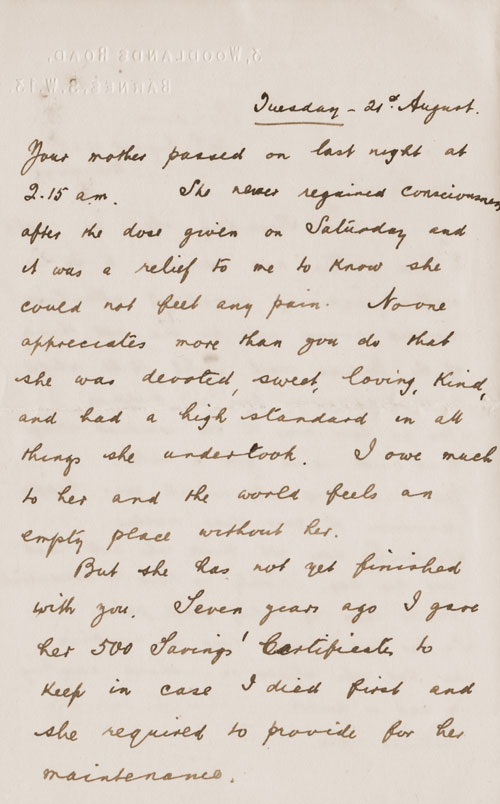 3, WOODLANDS ROAD,
BARNES, S.W.13.
Tuesday - 21st August.
Your mother passed on last night at
2.15 am. She never regained consciousness
after the dose given on Saturday and
it was a relief to me to know she
could not feel any pain. No one
appreciates more than you do that
she was devoted, sweet, loving, kind,
and had a high standard in all
things she undertook. I owe much
to her and the world feels an
empty place without her.
But she has not yet finished
with you. Seven years ago I gave
her 500 Savings' Certificates to
keep in case I died first and
she required to provide for her
maintenance.